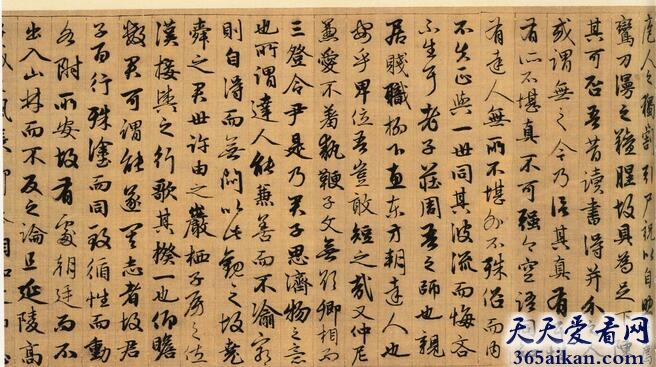 庖人之獨割引尸祝以自助
鸞刀漫之羶腥故具為足下
其可否吾昔讀書得并介之人
或謂無之今乃信其真有耳
有所不堪真不可强今空語同
有達人無所不堪外不殊俗而内
不失正與一世同其波流而悔吝
不生耳老子莊周吾之師也親
居賤職柳下惠東方朔達人也
安乎卑位吾豈敢短之哉又仲尼
兼愛不羞執鞭子文無欲卿相而
三登令尹是乃君子思濟物之意
也所謂達人能兼善而不渝窮
則自得而無悶以此觀之故堯
舜之君世許由之巖栖子房之佐
漢接輿之行歌其揆一也仰瞻
數君可謂能遂其志者故君
子百行殊塗而同致循性而動
各附所安故有處朝廷而不
出入山林而不反之論且延陵高
天天爱看网
365aikan.com